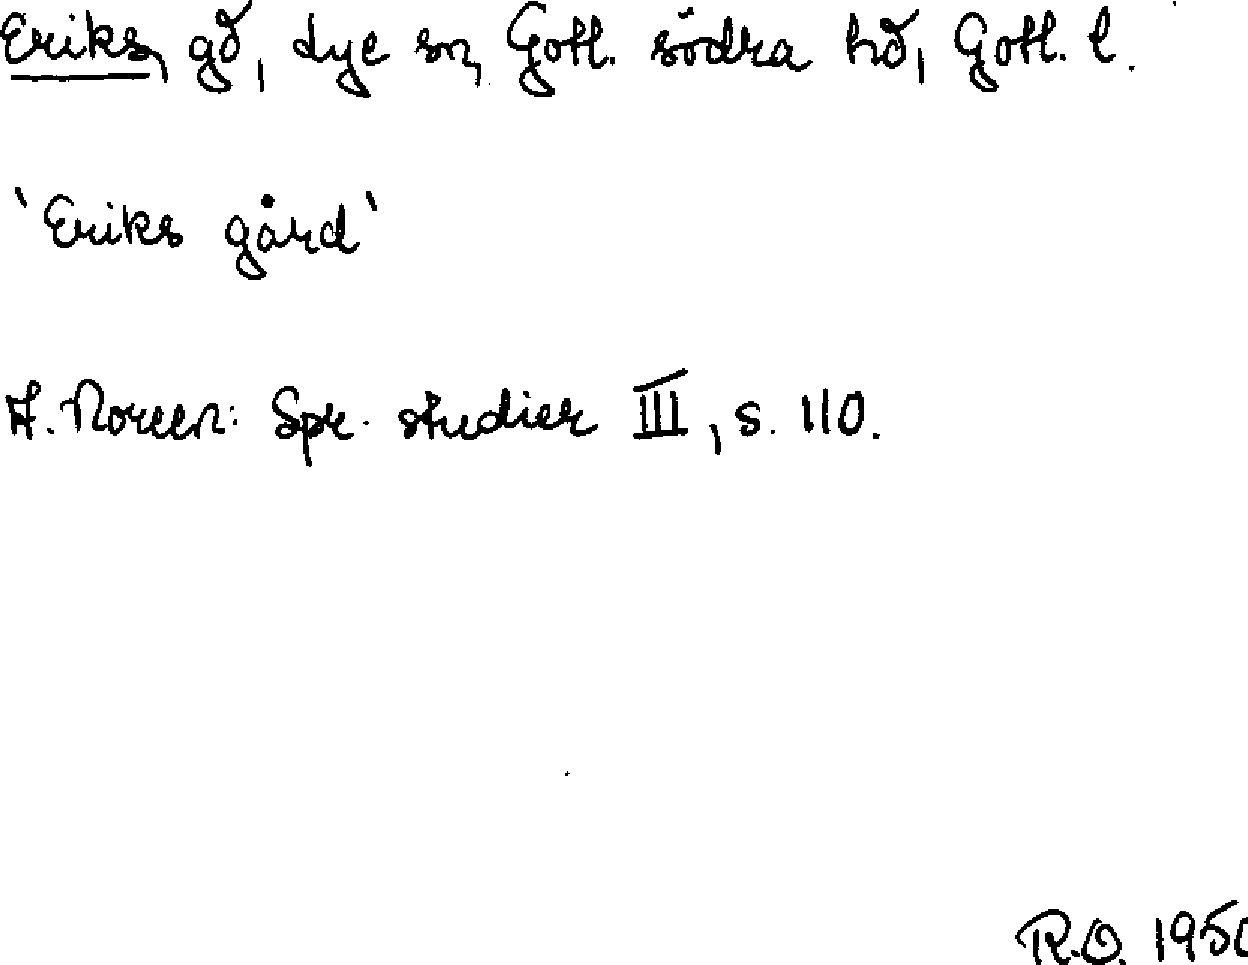 Eriks, gd, Lye sn, Gotl. södra hd, Gotl. l.
'Eriks gård'
A. Noreen: Spr. studier III, s. 110.
R.O. 195